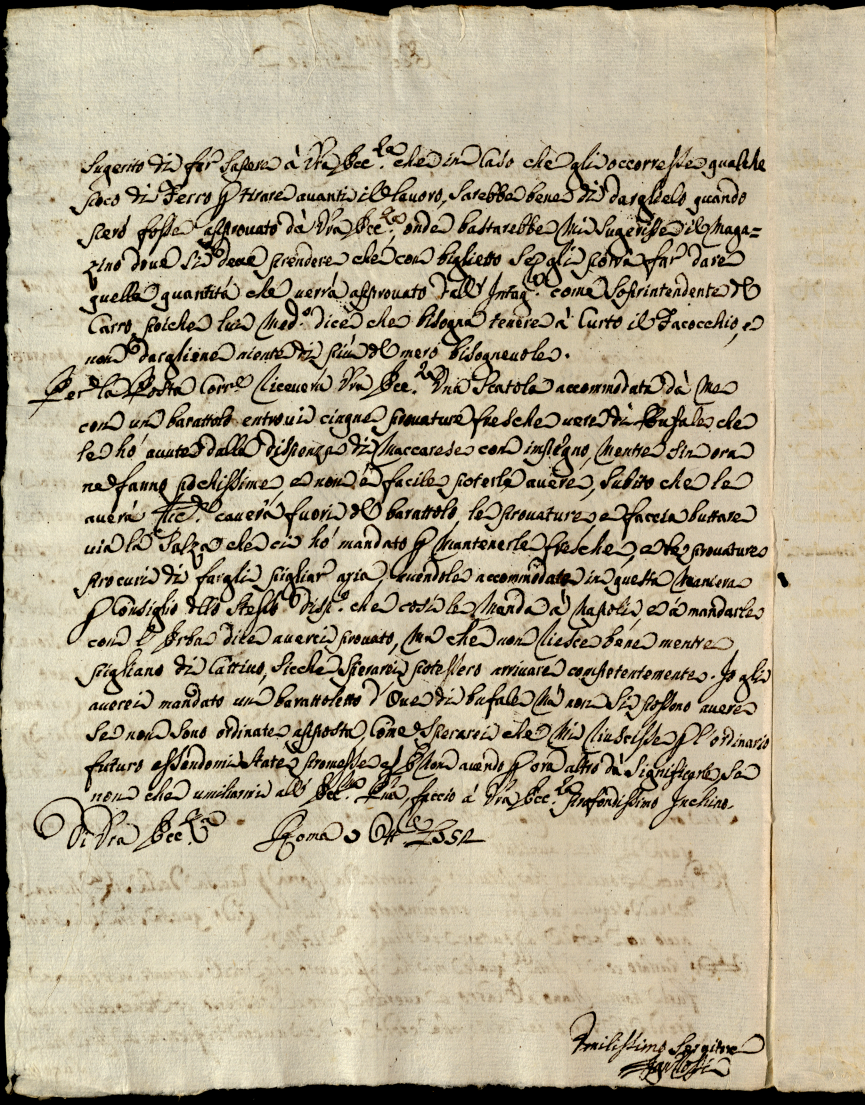 Sugerito di far sapere à Vra Ecc.za che in caso che gli occorresse qualche
pioco di Ferro p tirare avanti il lavoro, sarebbe bene di darglielo quando
però fosse approvato dà Vra Ecc.za onde bastarebbe mi sugerisse il Maga=
zino dove si deve prendere che con biglietto se gli potrà far dare
quella quantità che verrà approvato dall' Intag.re come soprintendente del
Carro, poiche lui med.o dice che bisogna tenere à Curto il Facocchio, e
non darglione niente di più del mero bisognevole.
Per la Posta Corr.e riceverà Vra Ecc.za Una Scatola accommodata dà me
con un barattolo entrovi cinque provature fresche vere di bufale che
le hò avute dalla dispenza di Maccarese con impegno, mentre sin ora
ne fanno pochissime e non è facile poterle avere, subito che le
averà caverà fuori del barattolo le provature e faccia buttare
via la Salza che ci hò mandato p mantenerle fresche, e le provature
procuri di fargli pigliar aria, avendole accommodate in questa maniera
p Consiglio dello stesso disp.e che così le manda à Napoli, e à mandarle
con l'erba dice averci provato, mà che non riesce bene mentre
pigliano di Cattivo, sicche sperarei potessero arrivare competentemente. Io gli
averei mandato un barattoletto d'Ove di bufale mà non si possono avere
se non sono ordinate apposta, come sperarei che mi riuscisse p l'ordinario
futuro essendomi state promesse e non avendo p ora altro dà significarle se
non che umiliarmi all' Ecc.za Pna, faccio à Vra Ecc.za profondissimo Inchino.
Di Vra Ecc.za Roma
Umilissimo Servitore